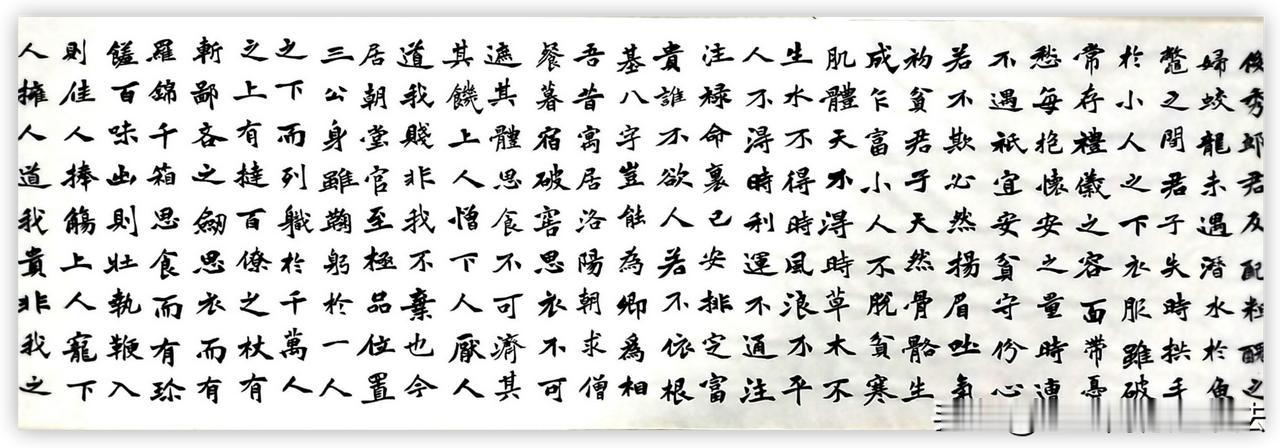 俊秀郎君反配粗醜之
婦蛟龍未遇潛水於魚
鱉之間君子失時拱手
於小人之下衣服雖破
常存禮儀之容面帶憂
愁每抱懷安之量時遭
不遇祇宜安貧守份心
若不欺必然揚眉吐氣
初貧君子天然骨骼生
成乍富小人不脫貧寒
肌體天不淂時草木不
生水不得時風浪不平
人不淂時利運不通注
注祿命裏已安排定富
貴誰不欲人若不依根
基八字豈能為卿爲相
吾昔寓居洛陽朝求僧
餐暮宿破窖思衣不可
遮其體思食不可濟其
其饑上人憎下人厭人
道我賤非我不棄也今
居朝堂官至極品位置
三公身雖鞠躬於一人
之下而列職於千萬人
之上有撻百僚之杖有
斬鄙吝之劍思衣而有
羅錦千箱思食而有珍
饈百味出則壯執鞭入
則佳人捧觴上人寵下
人擁人道我貴非我之